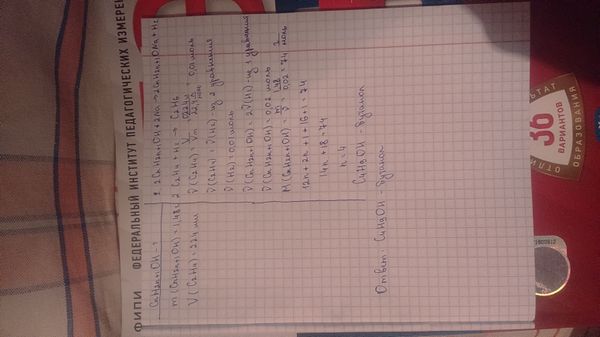 ФИПИ ФЕДЕРАЛЬНЫЙ ИНСТИТУТ ПЕДАГОГИЧЕСКИХ ИЗМЕРЕ
CnH2n+1OH - ?
m(CnH2n+1OH) = 1,48 г
V(C2H4) = 224 мл
1. 2CnH2n+1OH + 2Na → 2CnH2n+1ONa + H2
2 C2H4 + H2 → C2H6
ν(C2H4) = V/Vm = 0,224 л/22,4 л/моль = 0,01 моль
ν(C2H4) = ν(H2) - из 2 уравнения
ν(H2) = 0,01 моль
ν(CnH2n+1OH) = 2ν(H2) - из 1 уравнения
ν(CnH2n+1OH) = 0,02 моль
M(CnH2n+1OH) = m/ν = 1,48/0,02 = 74 г/моль
12n + 2n + 1 + 16 + 1 = 74
14n + 18 = 74
n = 4
C4H9OH - бутанол
Ответ: C4H9OH - бутанол
36
ВАРИАНТОВ
ОБРАЗОВАНИЯ